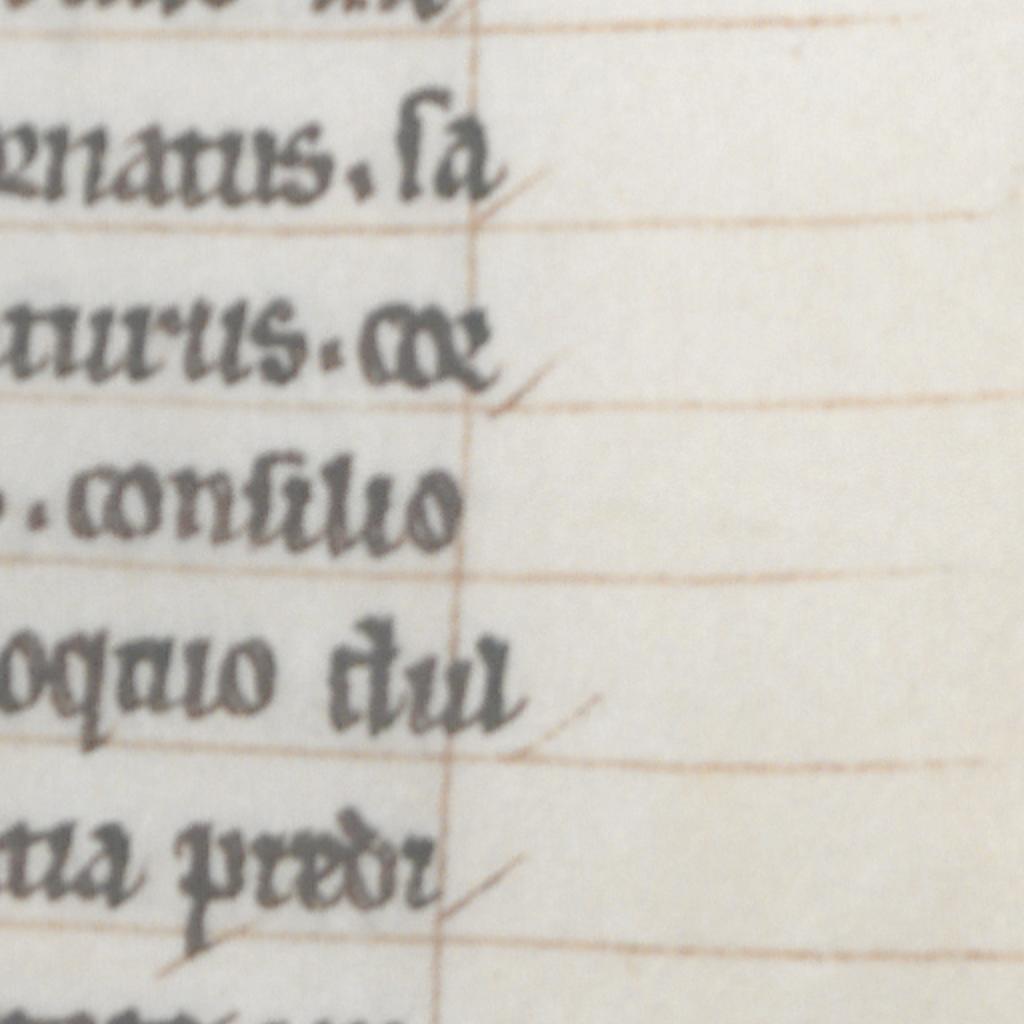 ernatus. sa
turus. coe
. consilio
oquio dul
tia predi